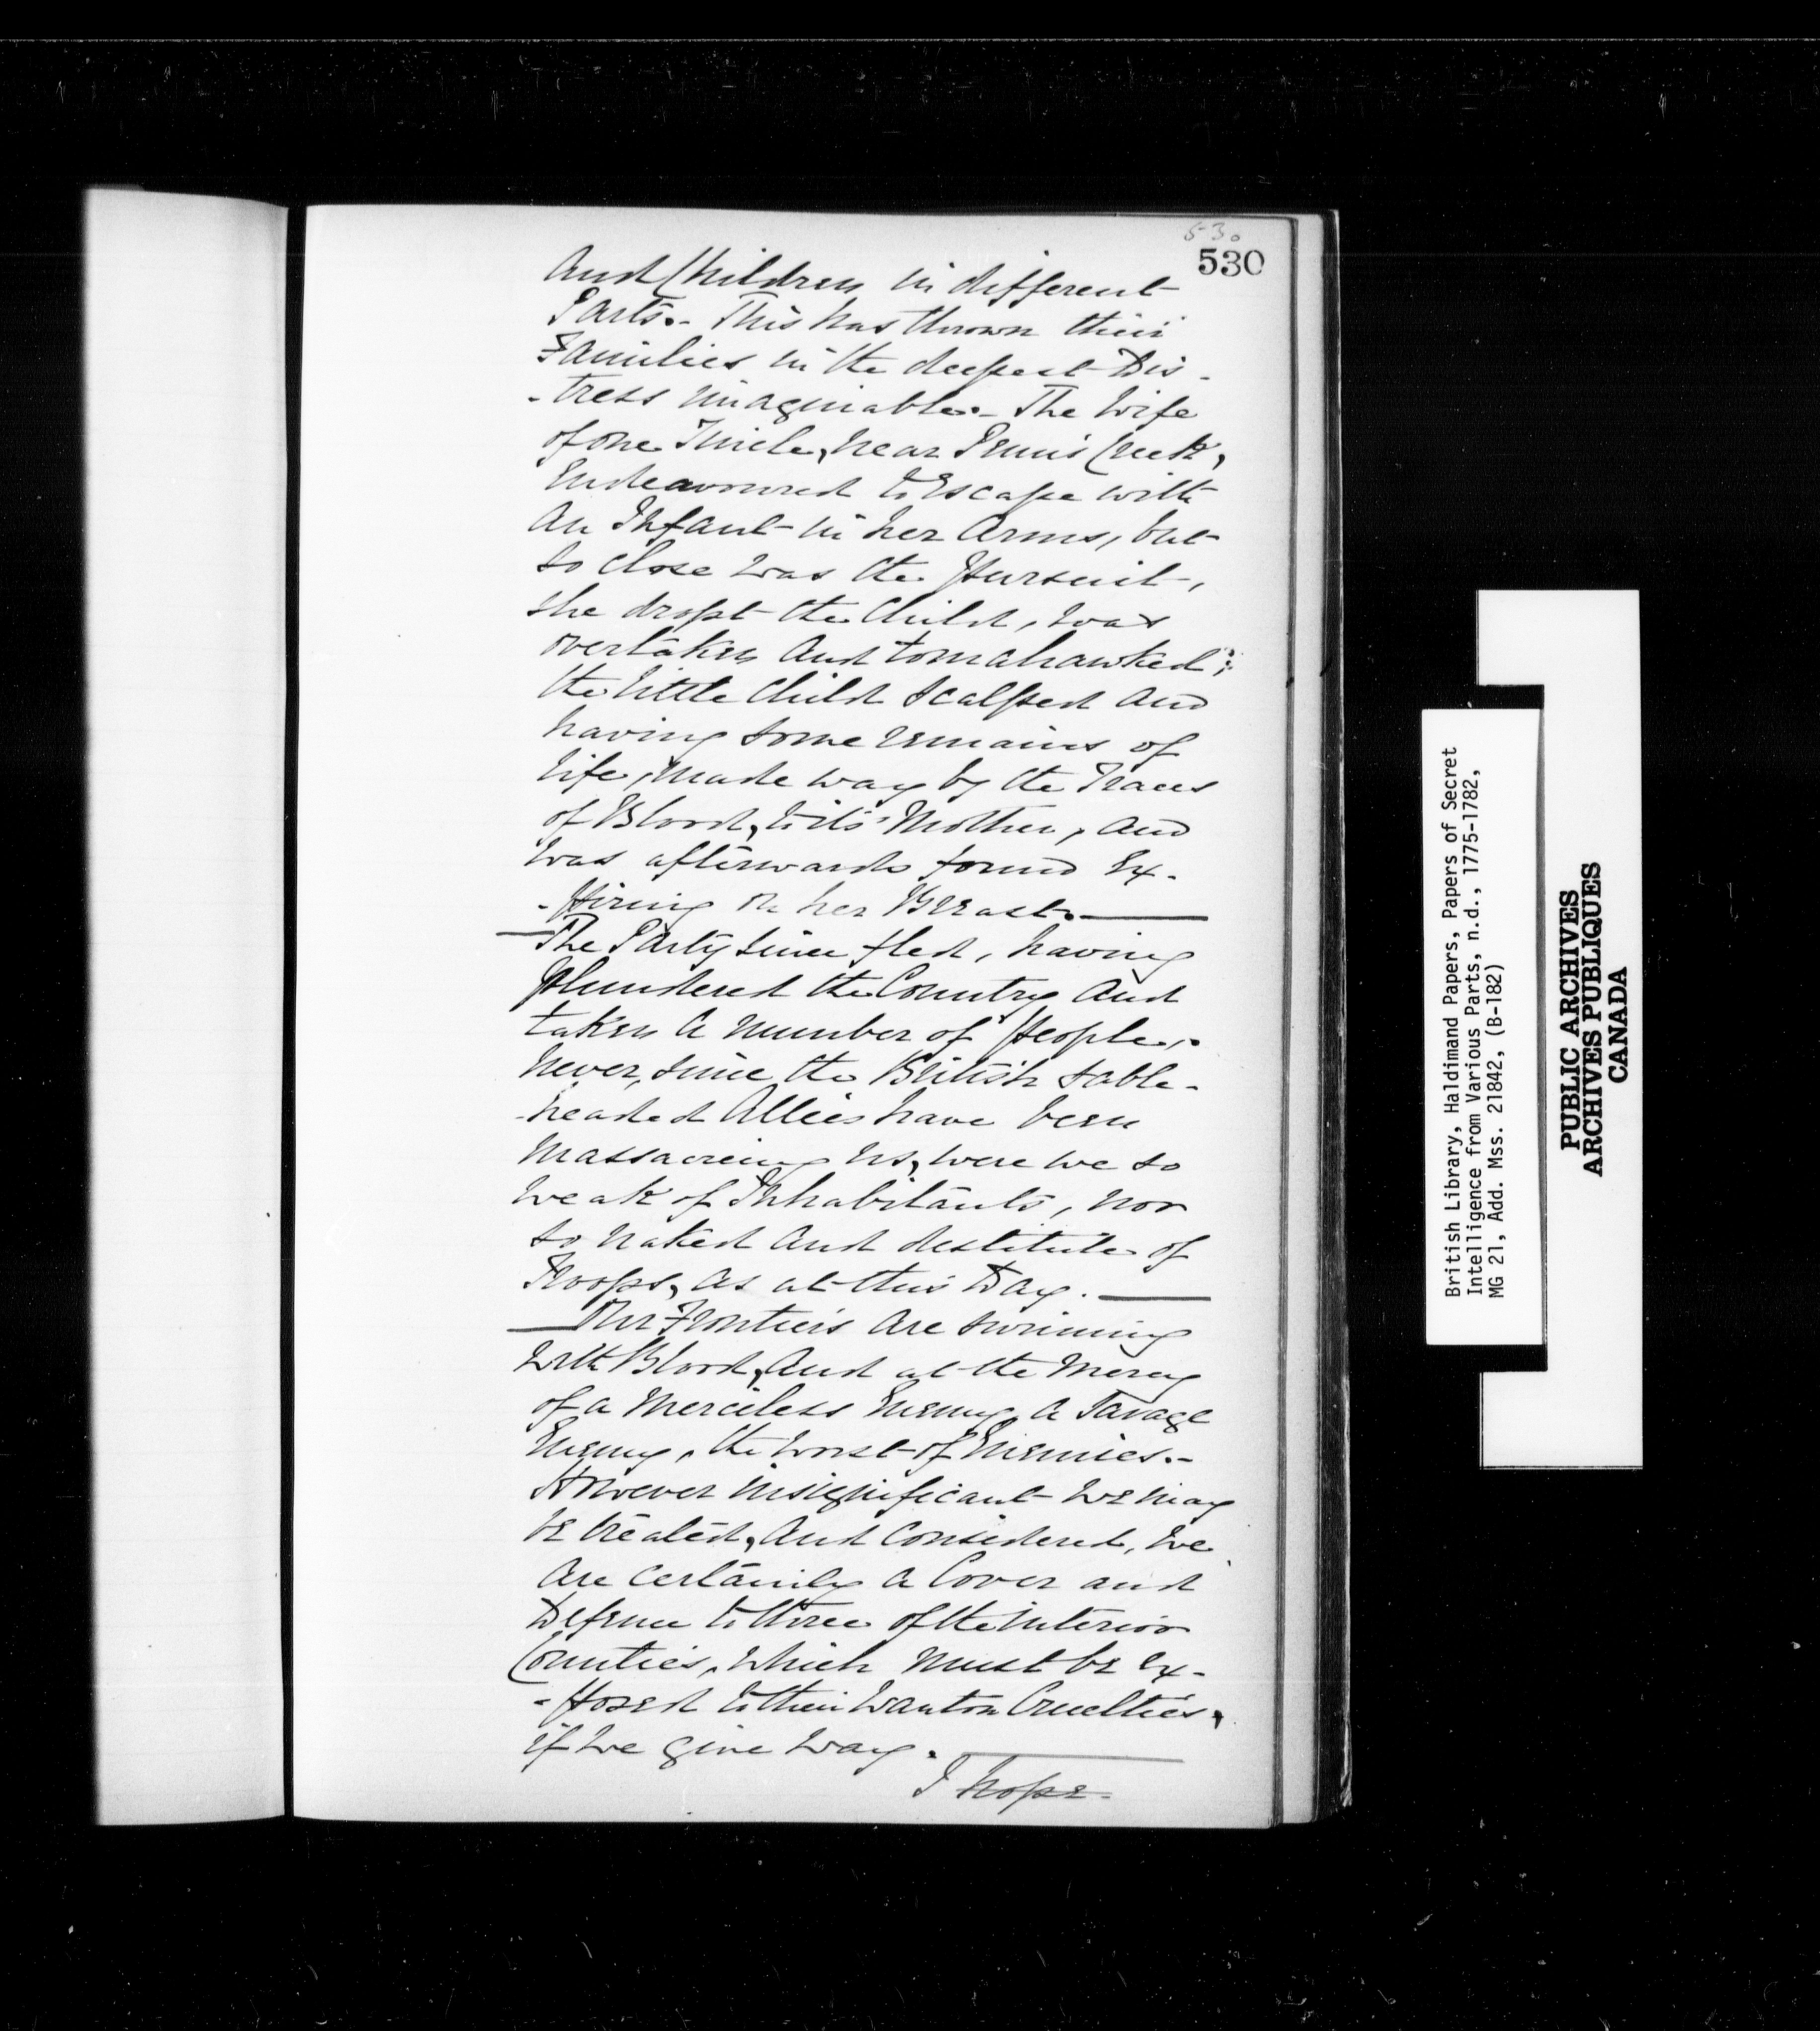 530
530
And Children in different
Parts.- This has thrown their
Families in the deepest Dis-
-tress imaginable.- The Wife
of one near Penns Creek,
Endeavoured to Escape with
An Infant in her Arms, but
so close was the Pursuit,
she dropt the Child, was
overtaken And tomahawked;
the little Child scalped and
having some remains of
life, made way by the Traces
of Blood, to its' Mother, and
was afterwards found Ex-
-piring on her Breast.
The Party since fled, having
plundered the Country And
taken A number of People,.
Never, since the British sable-
-headed Allies have been
Massacreing us, were we so
weak of Inhabitants, nor
so naked And destitute of
Troops, as at this Day.
Our Frontiers Are swiming
with Blood, And at the Mercy
of a Merciless Enemy, A Savage
Enemy, the worst of Enemies.-
However insignificant we may
be treated, And Considered, we
Are certainly A Cover and
Defence to three of the interior
Counties, which must be ex-
-posed to their wanton Cruelties,
if we give way.
I hope
British Library, Haldimand Papers, Papers of Secret
Intelligence from Various Parts, n.d., 1775-1782,
MG 21, Add. Mss. 21842, (B-182)
PUBLIC ARCHIVES
ARCHIVES PUBLIQUES
CANADA